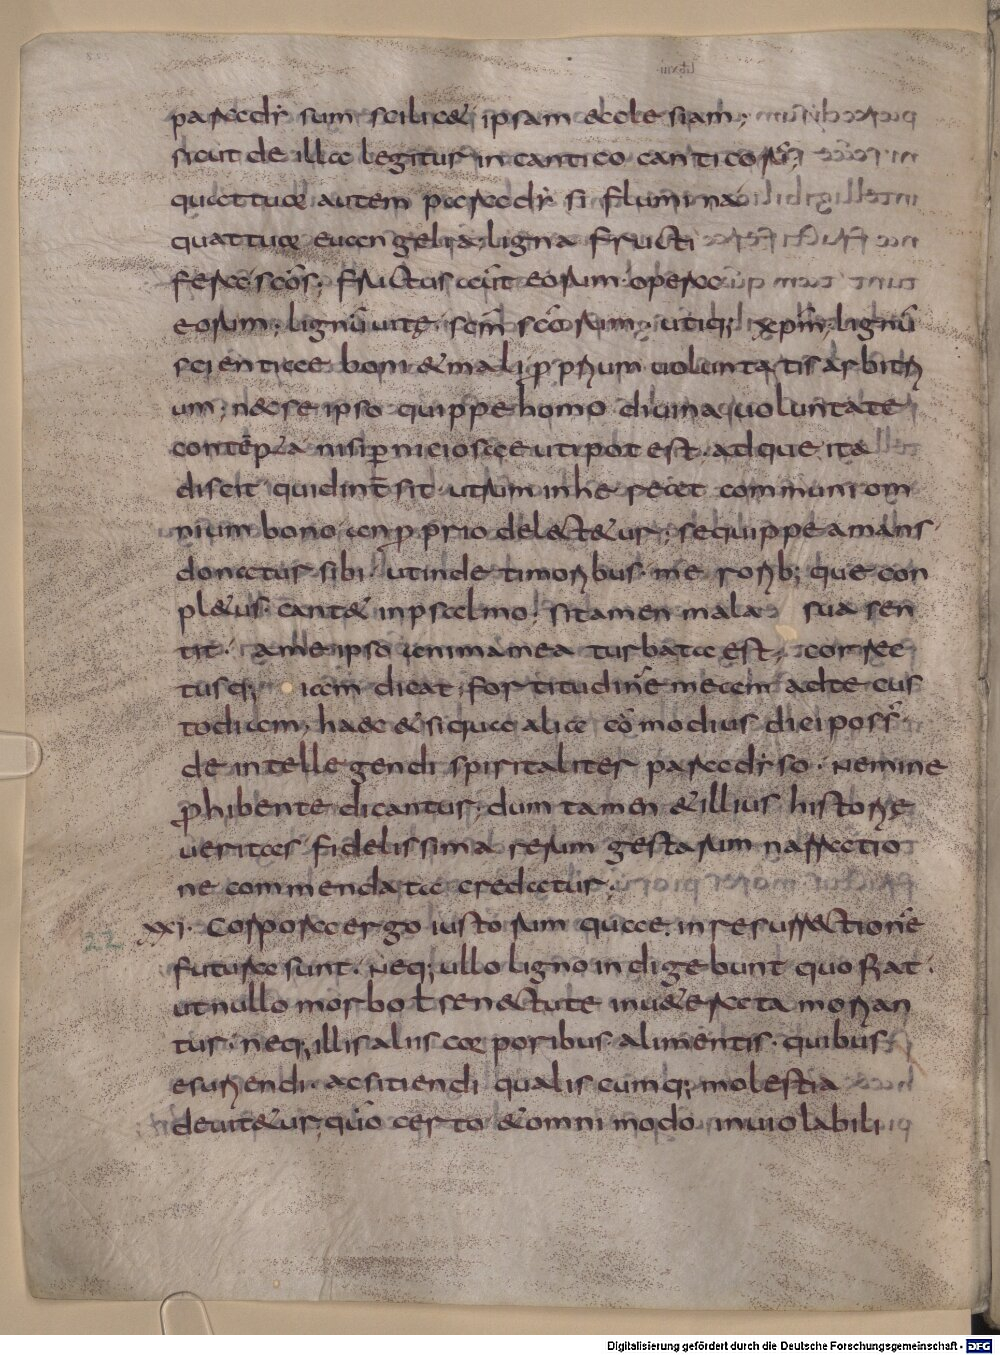 paradẏ sum scilicet ipsam ecclesiam;
sicut de illa legitur in cantico canticoꝝ;
quattuor autem paradẏ si flumina
quattuor euangelia; ligna fructi
fera scōs; fructus aūt eorum opera
eorum; lignū uitę; scm̄ scōrum; utiq; xp̄m; lignū
scientiae boni & mali; ꝓprium uoluntatis arbitri
um; nec se ipso quippe homo diuina uoluntate
contēpta nisi ꝑniciosae uti potest. adque ita
discit quid int̄sit. utrum inhereat communi om
nium bono. an ꝓprio delectetur; se quippe amans
donatur sibi. ut inde timoribus meroribq; que con
pletus. cantet in psalmo; si tamen mala sua sen
tit. a me ipso anima mea turbata est; correc
tusq; iam dicat; fortitudinē meam ad te cus
todiam; haec & si qua alia cōmodius dici poss̄
de intellegendi spiritaliter paradẏso. nemine
ꝓhibente dicantur; dum tamen & illius historię
ueritas fidelissima rerum gestarum narratio
ne commendata credatur;
xxi. Corpora ergo iustorum quae in resurrectionē
futura sunt. neq; ullo ligno indigebunt quo fiat.
ut nullo morbo ł senectute inueterata morian
tur. neq; illis aliis corporibus alimentis. quibus
esuriendi. ac sitiendi qualiscumq; molestia
deuitetur; quō certo & omnimodo inuiolabili
22
Digitalisierung gefördert durch die Deutsche Forschungsgemeinschaft - DFG